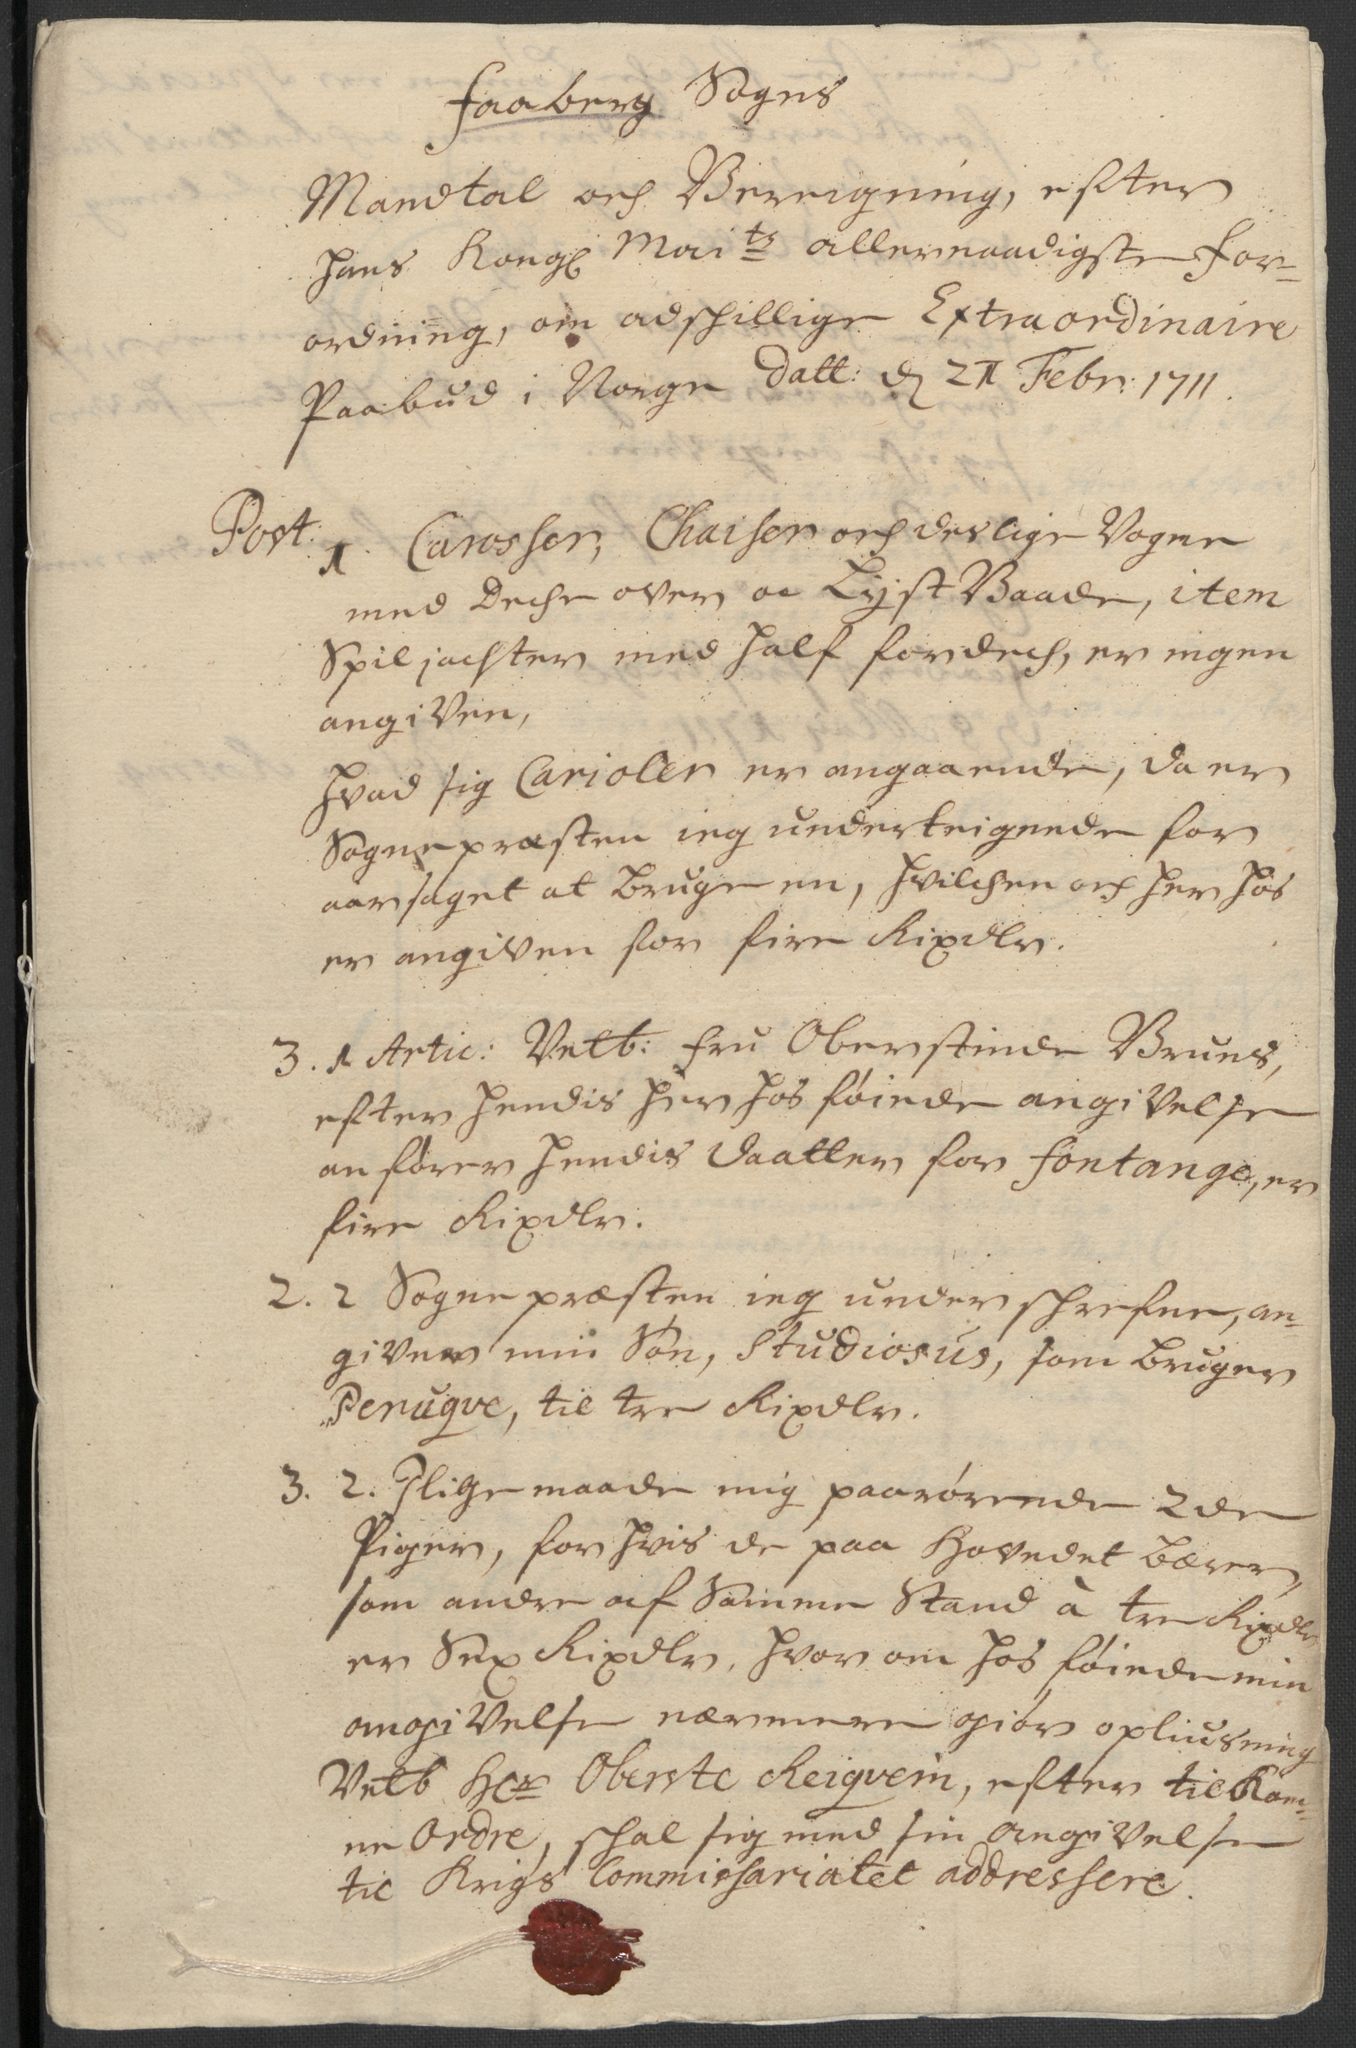 Faaberg Sogns
Mandtal och Bereigning, efter
Hans Kongl Maits allernaadigste For-
ordning, om adschillige Extraordinaire
Paabud i Norge Datt: d 21 Febr: 1711.
Post. 1 Carosser, Chaiser och deslige Vogne
med Deche over oc Lyst Baade, item
Spiljachter med half fordech, er ingen
angiven,
Hvad sig Carioler er angaaende, da er
Sognepræsten ieg underteignede for
aarsaget at bruge en, hvilchen och her hos
er angiven for fire Rixdlr.
3. 1 Artic: Velb: Fru Oberstinde Bruns,
efter hendis her hos föiede angivelse
anförer hendis Daatter for Fontange, er
fire Rixdlr.
2. 2 Sognepræsten ieg underschrefne, an-
giver min Sön, Studiosus, som bruger
Peruqve, til tre Rixdlr.
3. 2. Iligemaade mig paarörende 2de
Piger, for hvis de paa Hovedet bærer,
som andre af Samme Stand à tre Rixdlr
er Sex Rixdlr, hvor om hos föiede min
angivelse nærmere giör opliusning
Velb Her Oberste Reiqvein, efter bekom-
ne Ordre, schal sig med sin angivelse
til Krigs Commissariatet addressere.